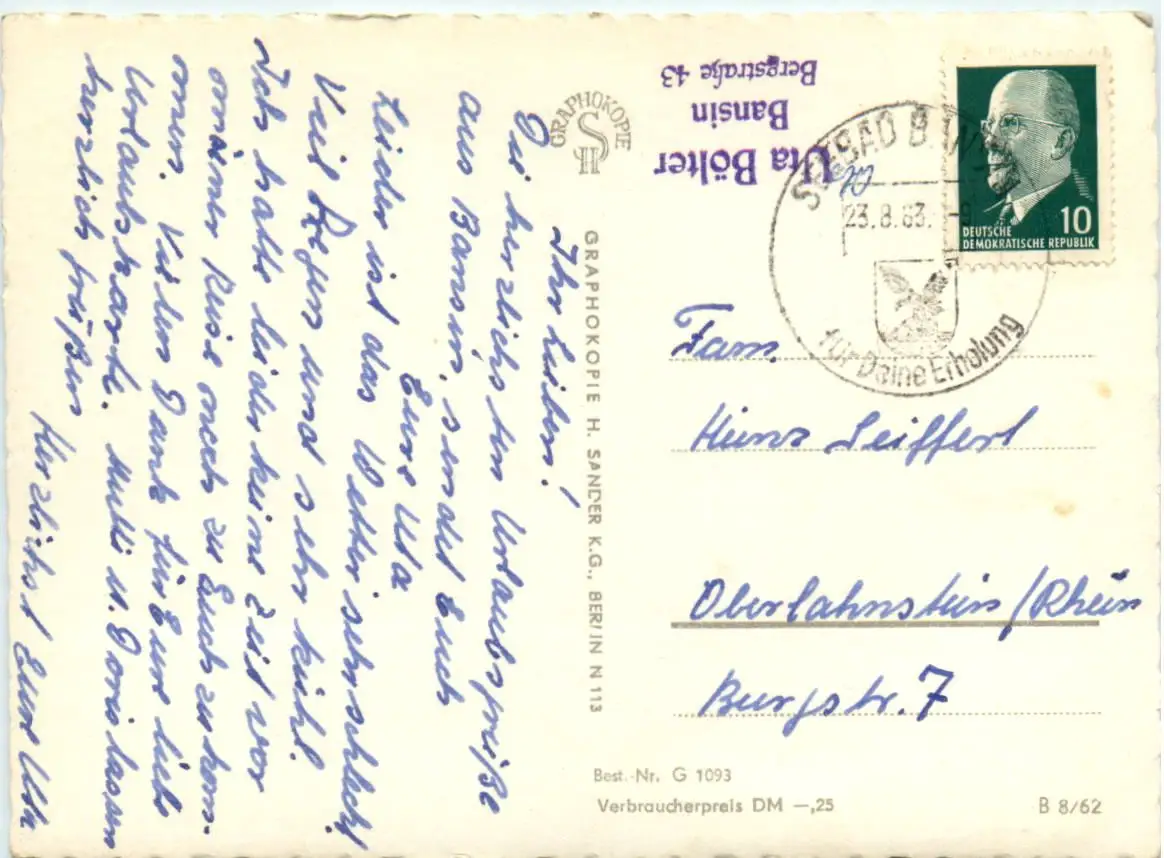 Ihr Lieben!
Die herzlichsten Urlaubsgrüße
aus Bansin, sendet Euch
Eure Uta
Leider ist das Wetter sehr schlecht!
Viel Regen und sehr kühl.
Ich hatte leider keine Zeit vor
meiner Reise noch zu Euch zu kom-
men. Vielen Dank für Eure liebe
Urlaubskarte. Mutti u. Doris lassen
herzlich grüßen
Herzlichst Eure Uta
GRAPHOKOPIE
H S
GRAPHOKOPIE H. SANDER K.G., BERLIN N 113
Uta Bölter
Bansin
Bergstraße 43
SEEBAD BANSIN
23.8.63. -9
für Deine Erholung
10
DEUTSCHE
DEMOKRATISCHE REPUBLIK
Fam.
Heinz Seiffert
Oberlahnstein/Rhein
Burgstr. 7
Best.-Nr. G 1093
Verbraucherpreis DM -,25
B 8/62